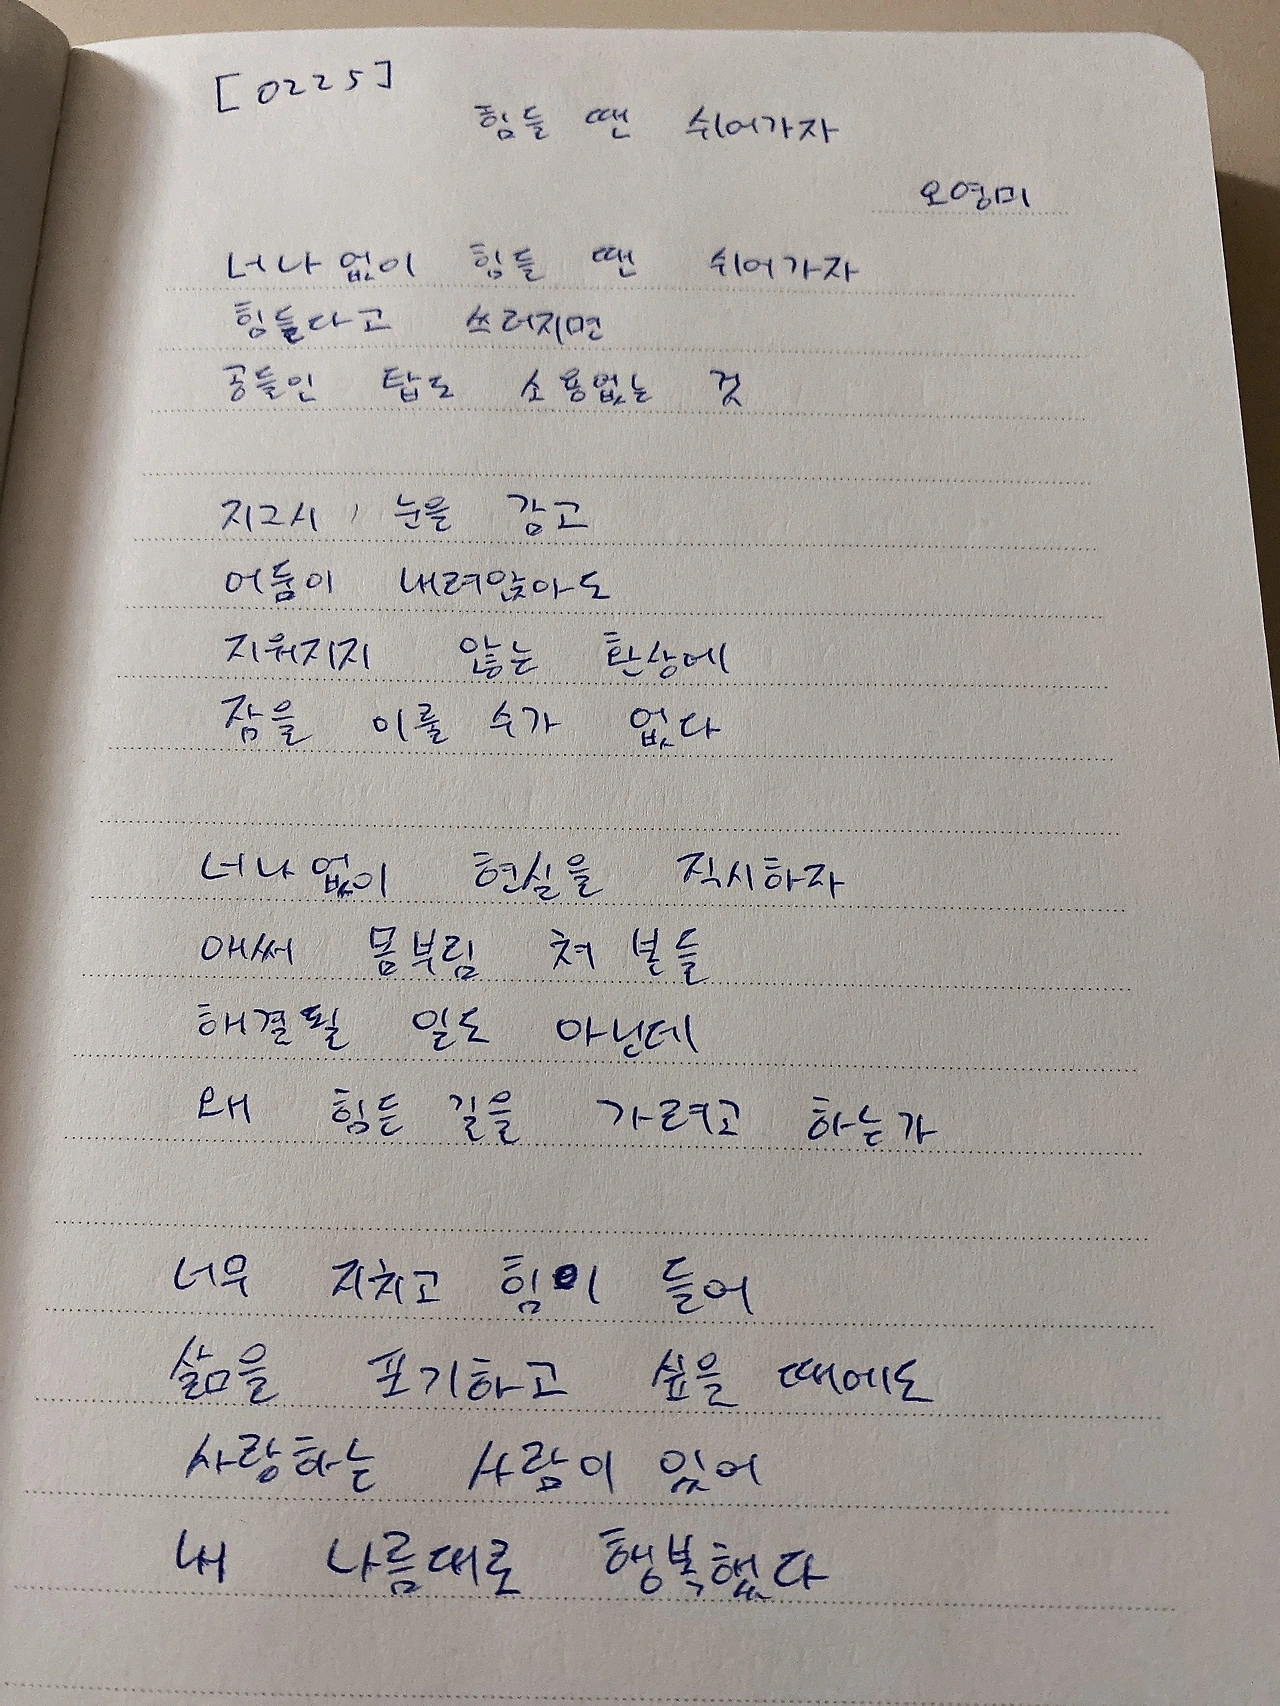 [0225]
힘들 땐 쉬어가자
오영미
너나없이 힘들 땐 쉬어가자
힘들다고 쓰러지면
공들인 탑도 소용없는 것
지그시 눈을 감고
어둠이 내려앉아도
지워지지 않는 환상에
잠을 이룰 수가 없다
너나없이 현실을 직시하자
애써 몸부림 쳐 본들
해결될 일도 아닌데
왜 힘든 길을 가려고 하는가
너무 지치고 힘이 들어
삶을 포기하고 싶을 때에도
사랑하는 사람이 있어
내 나름대로 행복했다